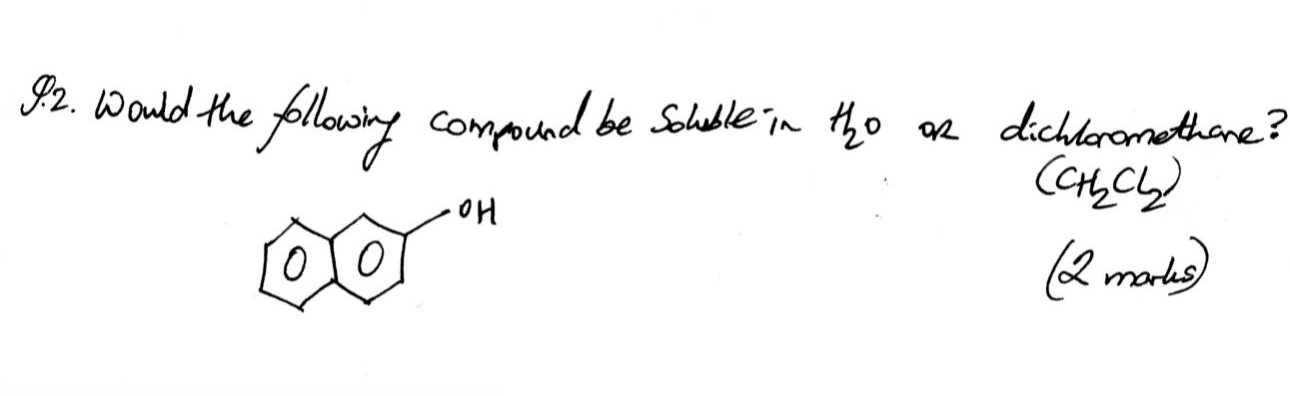 Q.2. Would the following compound be soluble in H₂O or dichloromethane?
(CH₂Cl₂)
OH
(2 marks)